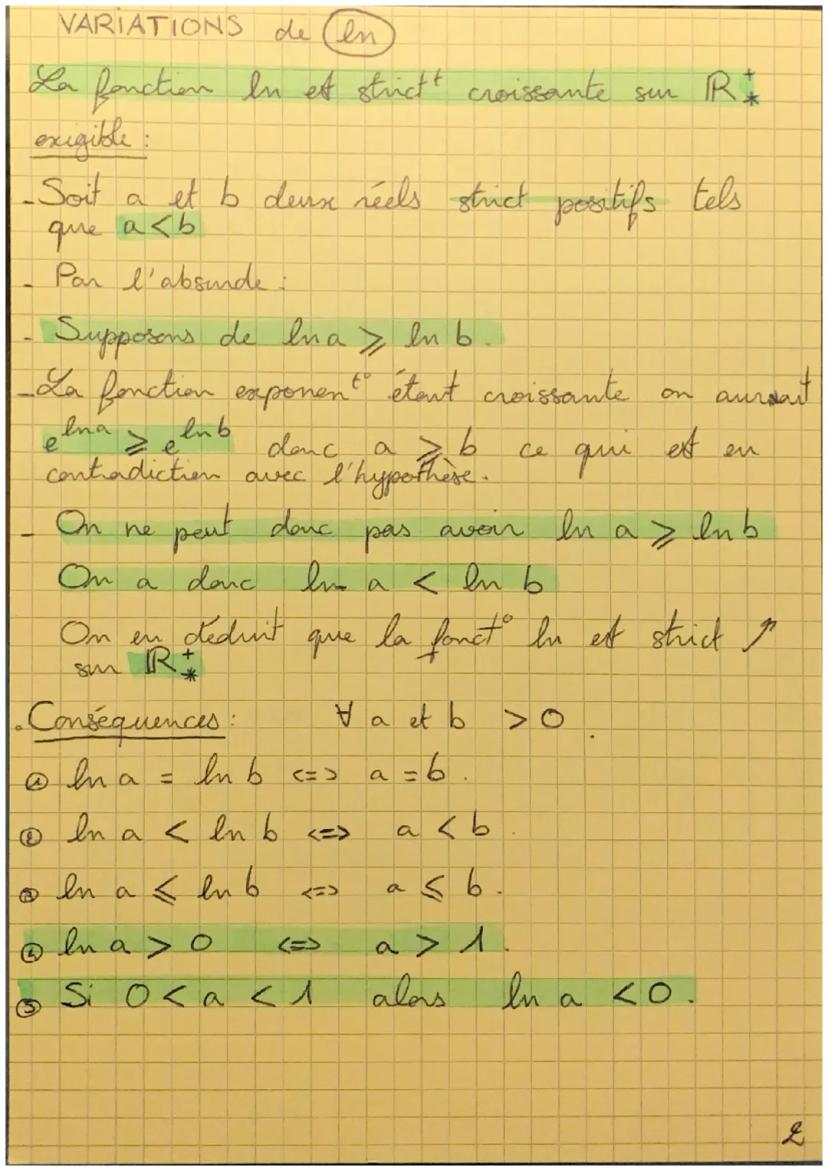 VARIATIONS de ln
La fonction ln est strictᵗ croissante sur ℝ⁺*
exigible :
- Soit a et b deux réels strict positifs tels
que a<b
- Par l'absurde :
- Supposons de ln a ⩾ ln b.
- La fonction exponenᵗ° étant croissante on aurait
e^ln a ⩾ e^ln b donc a ⩾ b ce qui est en
contradiction avec l'hypothèse.
- On ne peut donc pas avoir ln a ⩾ ln b
On a donc ln a < ln b
On en déduit que la fonct° ln est strict ↗
sur ℝ⁺*
. Conséquences : ∀ a et b > 0.
① ln a = ln b <=> a = b.
② ln a < ln b <=> a < b.
③ ln a ⩽ ln b <=> a ⩽ b.
④ ln a > 0 <=> a > 1.
⑤ Si 0 < a < 1 alors ln a < 0.
2